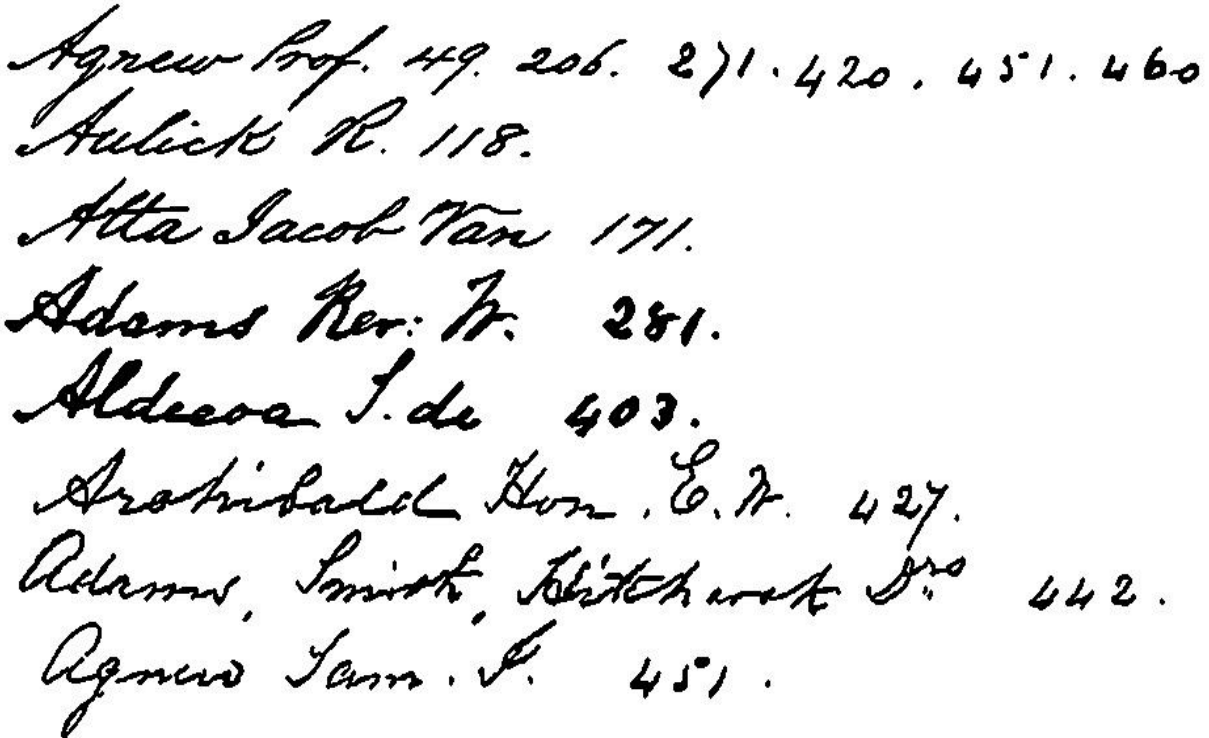 Agnew Prof. 49. 206. 271. 420. 451. 460
Aulick R. 118.
Atta Jacob Van 171.
Adams Rev: W. 281.
Aldecoa J. de 403.
Archibald Hon. E. W. 427.
Adams, Smith, Hitchcock Drs 442.
Agnew Sam. F. 451.